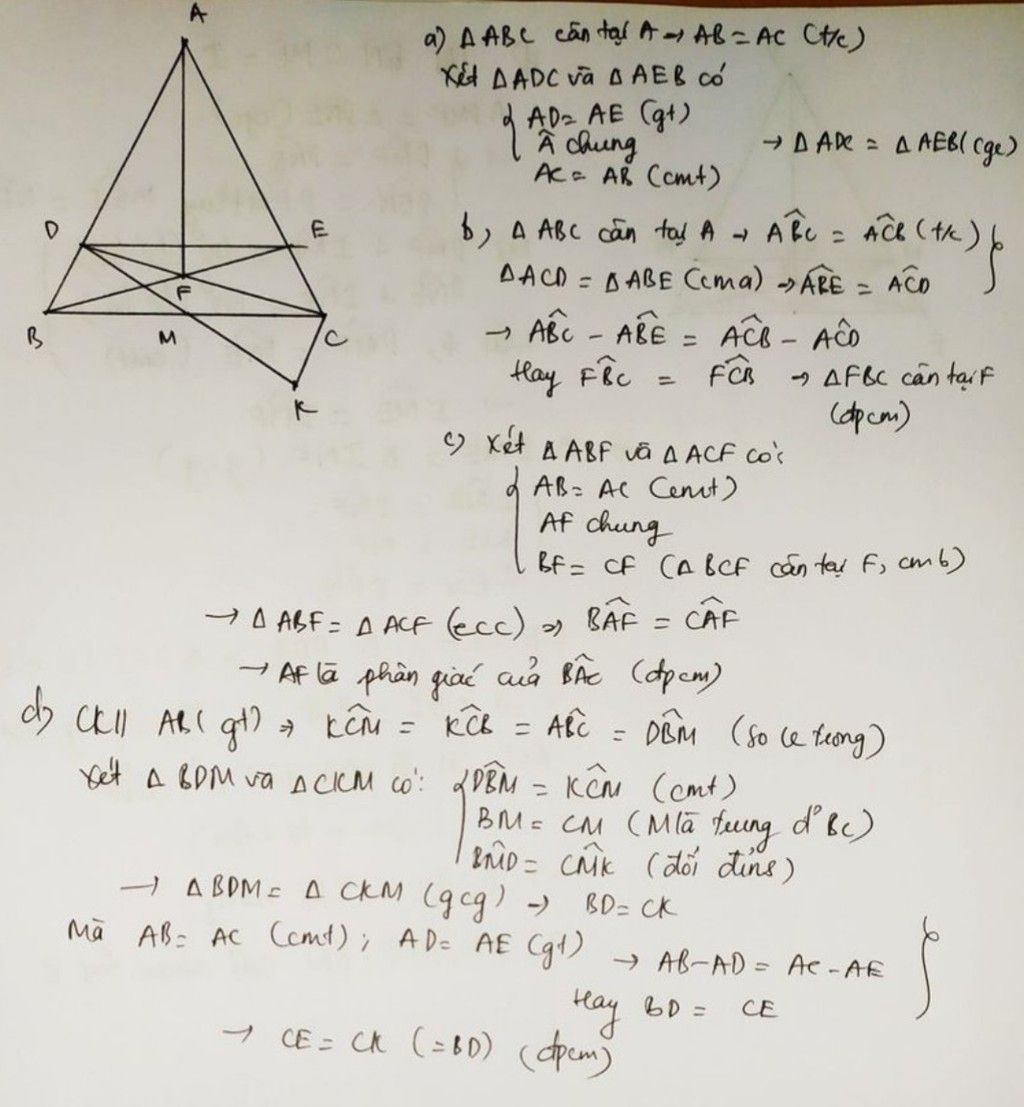 A
D
E
F
B
M
C
K
a) Δ ABC cân tại A → AB = AC (t/c)
Xét Δ ADC và Δ AEB có
AD = AE (gt)
Â chung → Δ ADC = Δ AEB (cgc)
AC = AB (cmt)
b, Δ ABC cân tại A → ABĈ = ACB̂ (t/c)
Δ ACD = Δ ABE (cma) → ABÊ = ACD̂
→ ABĈ - ABÊ = ACB̂ - ACD̂
Hay FBĈ = FCB̂ → Δ FBC cân tại F
(đpcm)
c) Xét Δ ABF và Δ ACF có:
AB = AC (cmt)
AF chung
BF = CF (Δ BCF cân tại F, cmb)
→ Δ ABF = Δ ACF (ccc) => BAF̂ = CAF̂
→ AF là phân giác của BAĈ (đpcm)
d) CK // AB (gt) → KCM̂ = KCB̂ = ABĈ = DBM̂ (so le trong)
Xét Δ BDM và Δ CKM có: DBM̂ = KCM̂ (cmt)
BM = CM (M là trung đ° BC)
BMD̂ = CMK̂ (đối đỉnh)
→ Δ BDM = Δ CKM (gcg) → BD = CK
Mà AB = AC (cmt); AD = AE (gt) → AB - AD = AC - AE
Hay BD = CE
→ CE = CK (= BD) (đpcm)